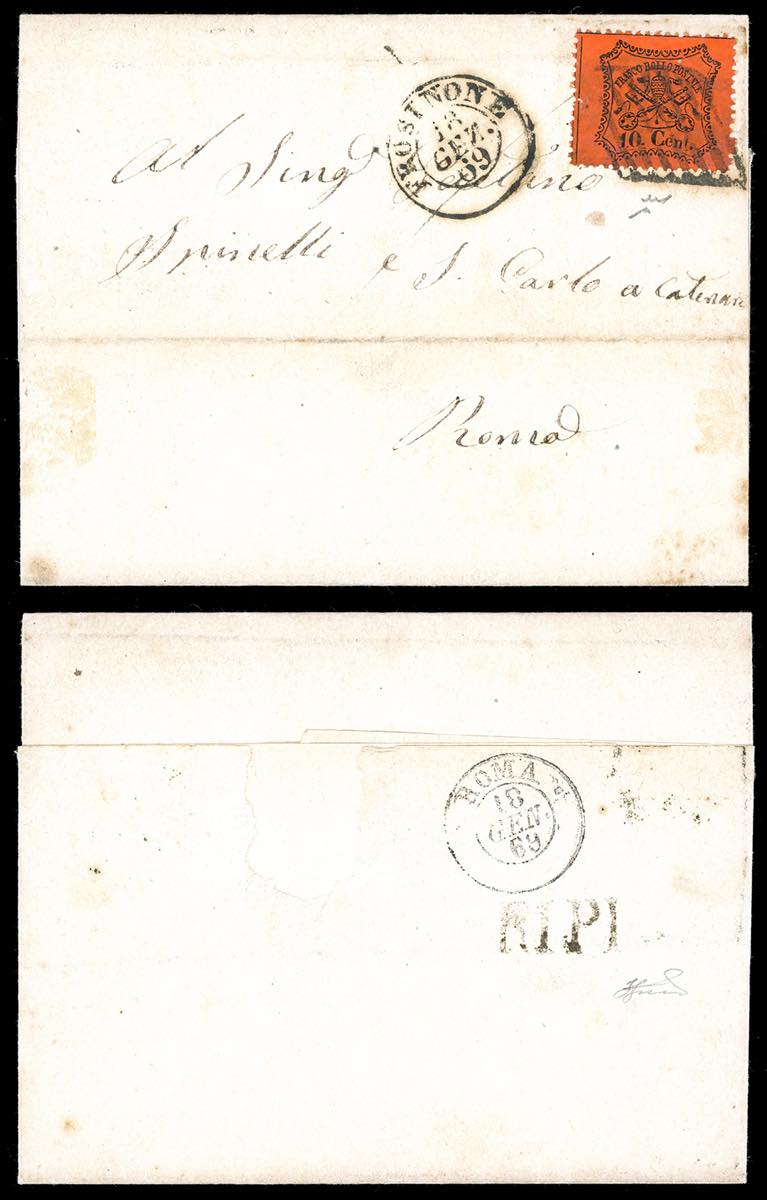 FRANCO BOLLO PONTIFICIO
10. Cent.
FROSINONE
18
GEN.
69
Al Sing
Spinelli e S. Carlo a Catenari
Roma
ROMA
18
GEN.
69
RIPI